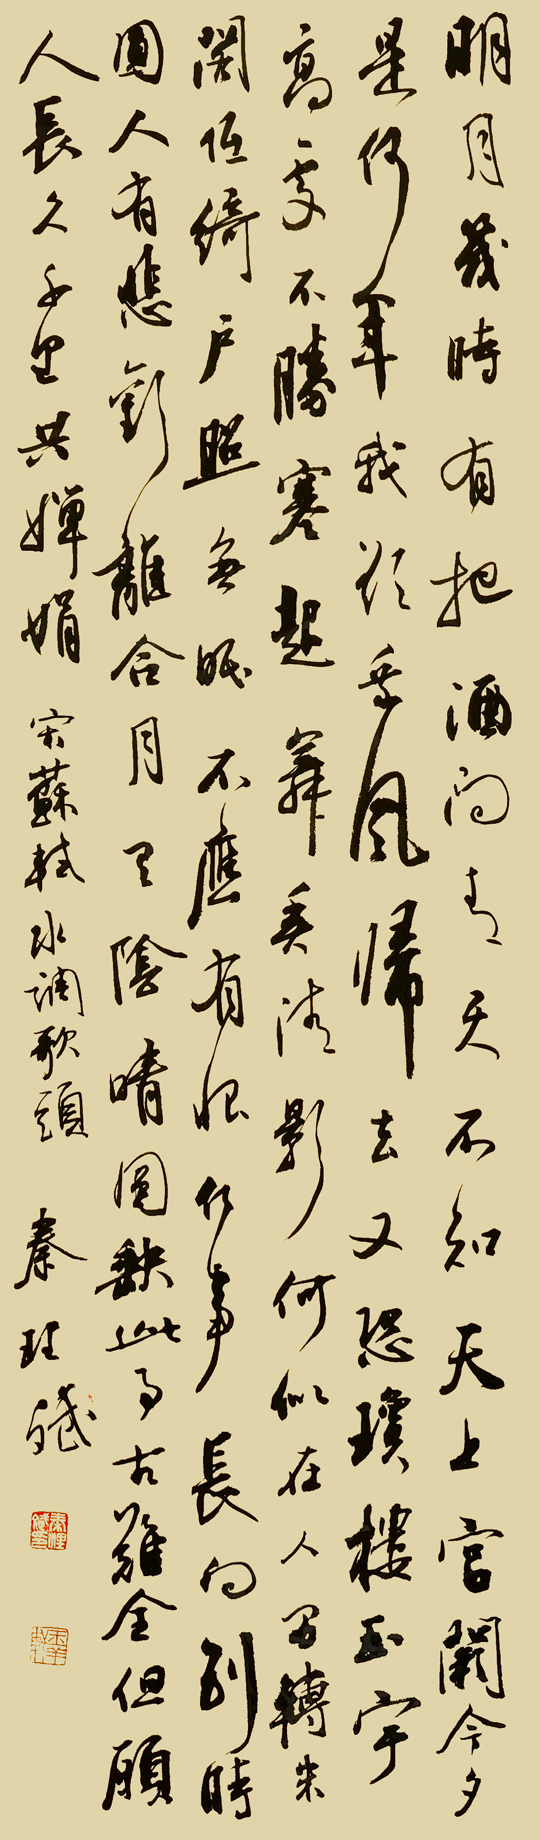 明月幾時有把酒問青天不知天上宮闕今夕
是何年我欲乘風歸去又恐瓊樓玉宇
高處不勝寒起舞弄清影何似在人間轉朱
閣低綺戶照無眠不應有恨何事長向別時
圓人有悲歡離合月有陰晴圓缺此事古難全但願
人長久千里共嬋娟 宋蘇軾水調歌頭 秦